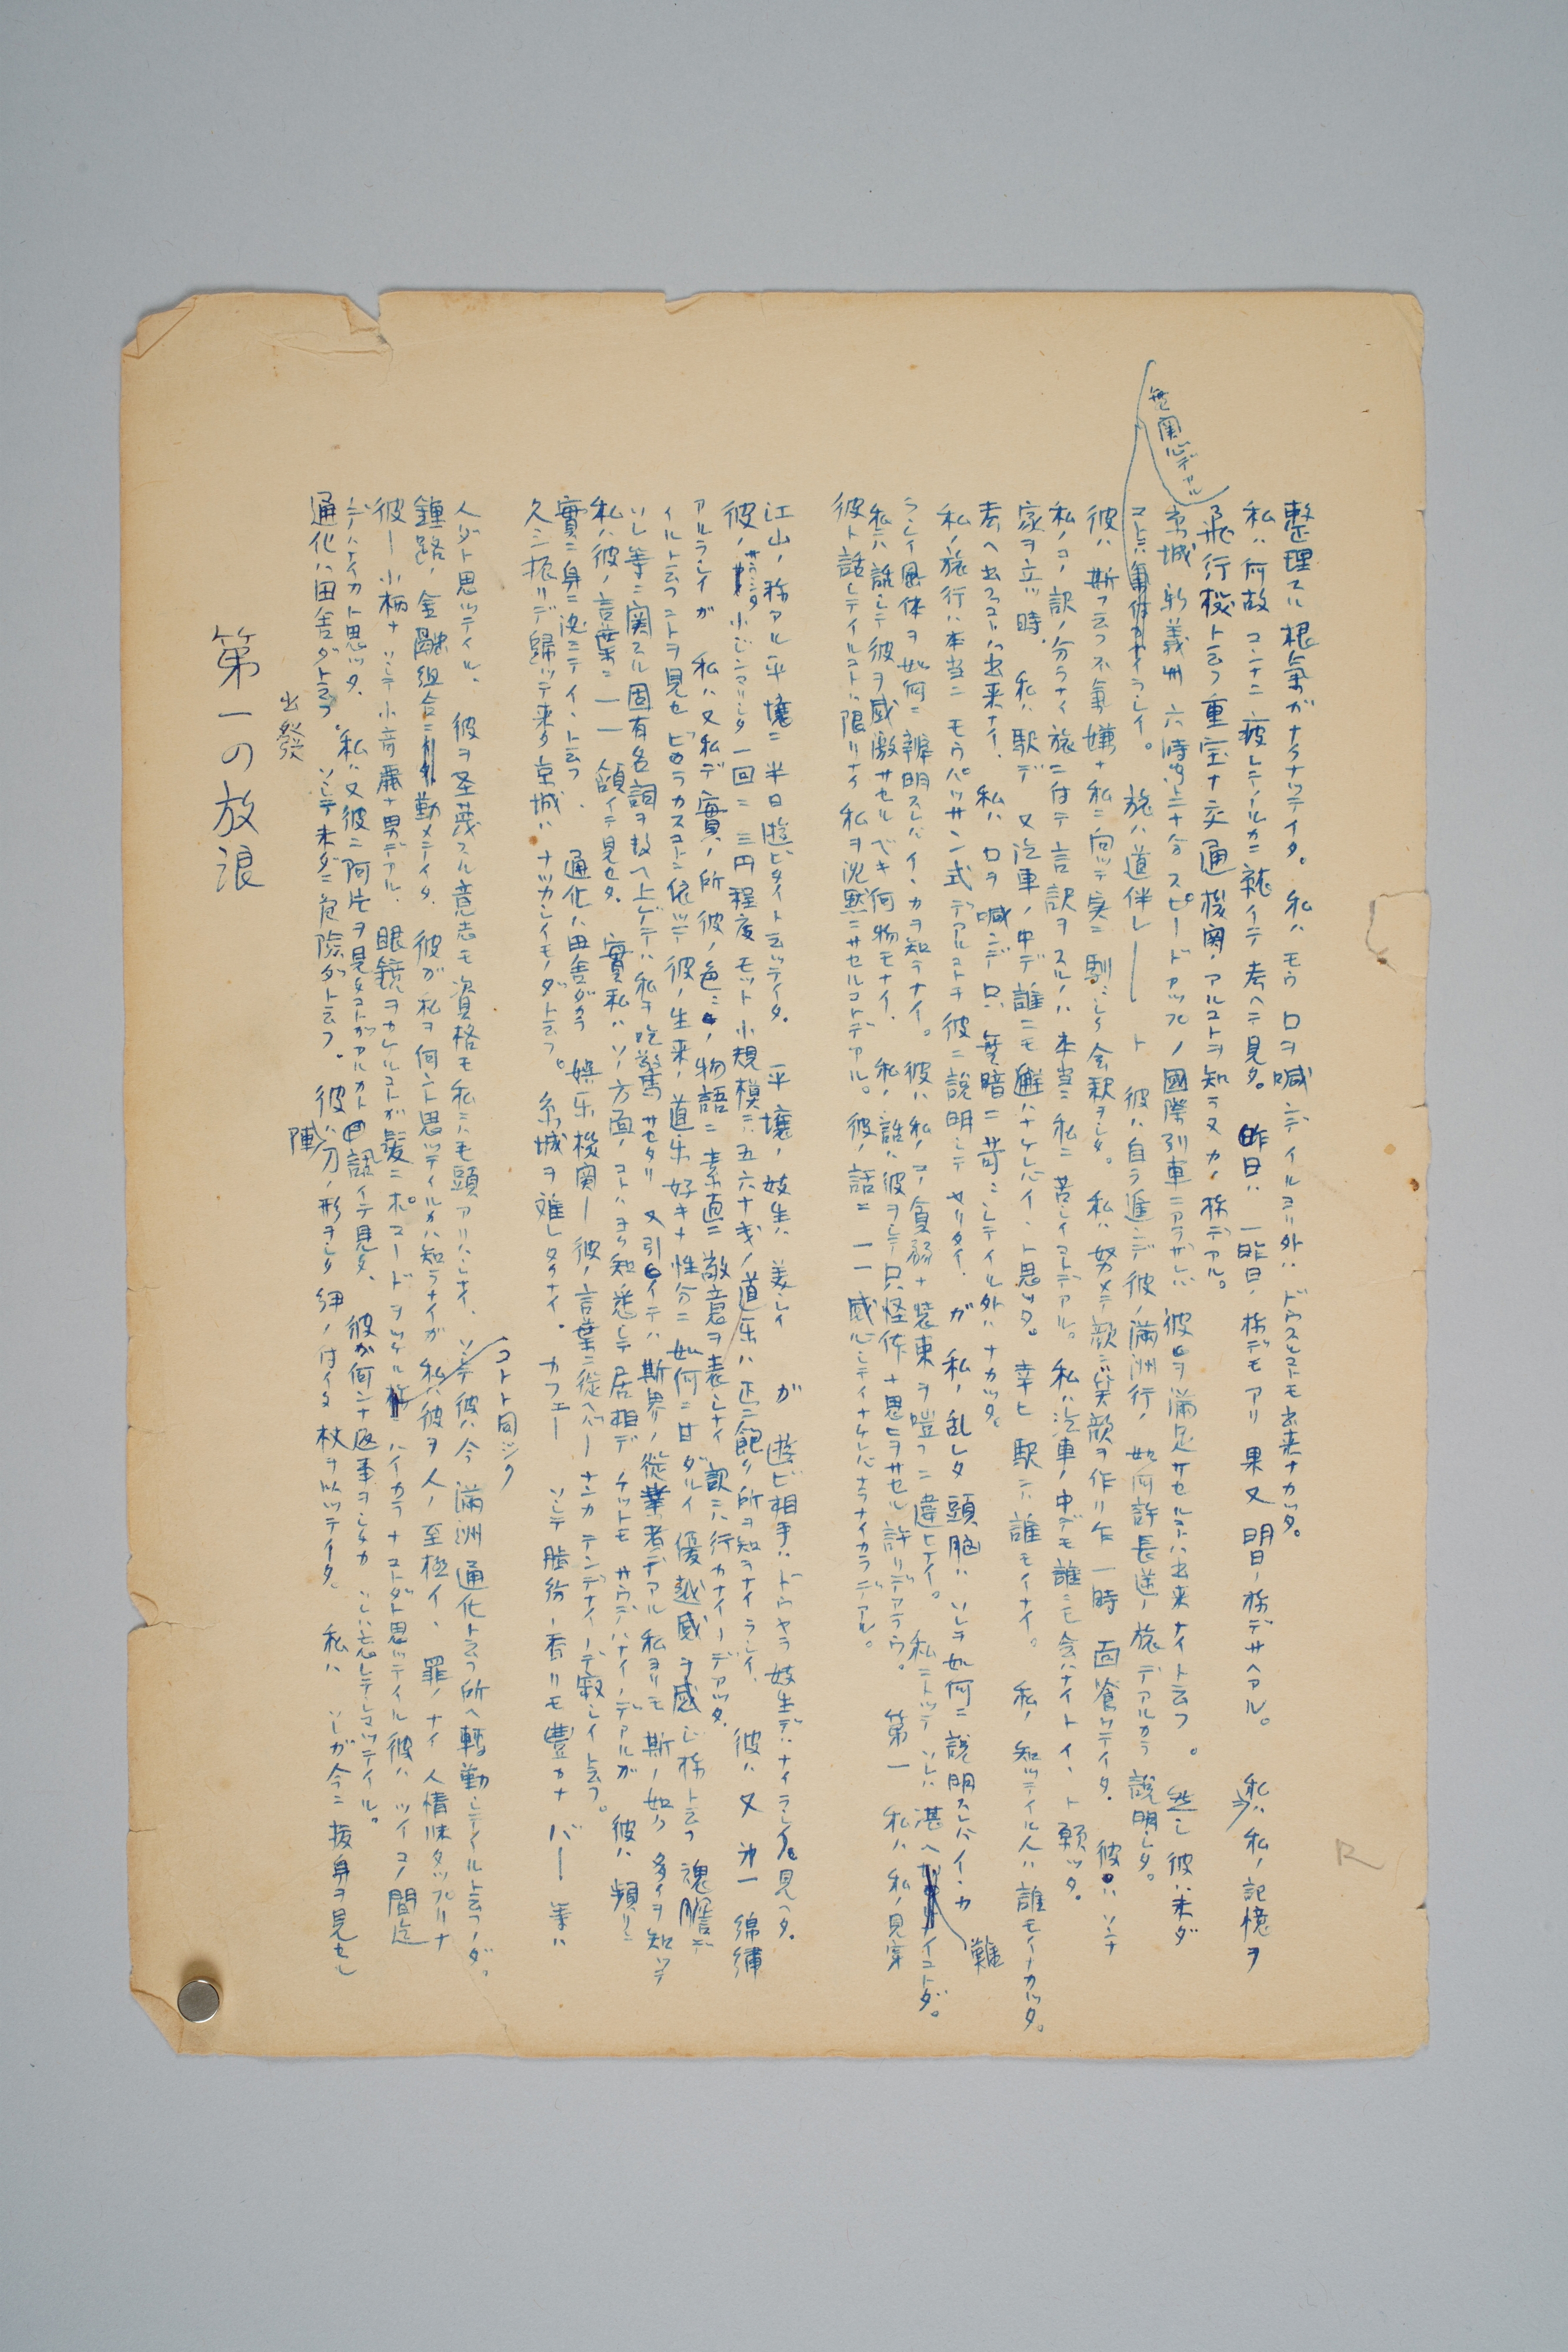 第一の放浪
出發
通化ハ田舎ダト云フ。ソシテ未ダニ危險ダト云フ。彼ハ劍ノ形ヲシタ 紐ノ付イタ 杖ヲ以ツテイタ。私ハ ソレガ今ニ抜身ヲ見セル
デハナイカト思ツタ。私ハ又彼ニ阿片ヲ見タコトガアルカト訊イテ見タ。彼ガ何ンナ返事ヲシタカ ソレハ忘レテシマツテイル。
彼ー小柄ナ ソシテ小奇麗ナ男デアル。眼鏡ヲカケルコトガ髪ニポマードヲツケル様ニハイカラナコトダト思ツテイル彼ハ ツイコノ間迄
コトト同ジク
鍾路ノ金融組合ニ勤メテイタ。彼ガ私ヲ何ント思ツテイルカハ知ラナイガ 私ハ彼ヲ人ノ至極イヽ 罪ノナイ 人情味タツプリナ
人ダト思ツテイル。彼ヲ圣蔑スル意志モ資格モ私ニハ毛頭アリハシナイ。ソシテ彼ハ今 滿洲通化ト云フ所ヘ轉勤シテイルト云フノダ。
久シ振リデ歸ツテ来タ京城ハ ナツカシイモノダト云フ。京城ヲ離レタクナイ。カフエー ソシテ脂粉ノ香リモ豊カナ バー 等ハ
實ニ身ニ沈ミテイヽト云フ。通化ハ田舎ダカラ 娯乐機関ー彼ノ言葉ニ從ヘバーナンカテンデナイノデ寂シイト云フ。
私ハ彼ノ言葉ニ一一頷イテ見セタ。實私ハソノ方面ノコトハヨク知悉シテ居相デ チツトモサウデハナイノデアルガ 彼ハ頻リニ
ソレ等ニ関スル固有名詞ヲ数ヘ上ゲテハ私ヲ吃驚サセタリ 又引イテハ斯界ノ從業者デアル私ヨリモ斯ノ如ク多クヲ知ツテ
イルト云フコトヲ見セビラカスコトニ依ツテ彼ノ生来ノ道乐好キナ性分ニ如何ニ甘ダルイ優越感ヲ感ジ様ト云フ魂膽デ
アルラシイガ 私ハ又私デ實ノ所彼ノ色ミノ物語ニ素直ニ敵意ヲ表シナイ訳ニハ行カナイノデアツタ。
彼ノサウシタ小ジンマリシタ一回ニ三円程度モツト小規模ニハ五六十銭ノ道乐ハ正ニ飽ク所ヲ知ラナイラシイ。彼ハ又 㐧一 錦繍
江山ノ称アル平壤ニ半日遊ビタイト云ツテイタ。平壤ノ妓生ハ美シイ ガ 遊ビ相手ハドウヤラ妓生デハナイラシク見ヘタ。
彼ト話シテイルコトハ限リナイ私ヲ沈黙ニサセルコトデアル。彼ノ話ニ一一感心シテイナケレバナラナイカラデアル。
私ニハ話シテ彼ヲ感激サセルベキ何物モナイ。私ノ話ハ彼ヲシテ只怪体ナ思ヒヲサセル許リデアラウ。第一 私ハ私ノ見窄
ラシイ風体ヲ如何ニ辨明スレバイヽカヲ知ラナイ。彼ハ私ノコノ貧弱ナ装束ヲ嗤フニ違ヒナイ。私ニトツテ ソレハ堪ヘ難イコトダ。
私ノ旅行ハ本当ニ モウパツサン式デアルコトヲ彼ニ説明シテヤリタイ。ガ 私ノ乱レタ頭脳ハ ソレヲ如何ニ説明スレバイヽカ
考ヘ出スコトハ出来ナイ。私ハ口ヲ噤ンデ只無暗ニ苛ミシテイル外ハナカツタ。
家ヲ立ツ時。私ハ駅デ 又汽車ノ中デ誰ニモ會ハナケレバイヽト思ツタ。幸ヒ 駅ニハ誰モイナイ。私ノ知ツテイル人ハ誰モイナカツタ。
私ノコノ訳ノ分ラナイ旅ニ付テ言訳ヲスルノハ本当ニ私ニ苦シイコトデアル。私ハ汽車ノ中デモ誰ニモ会ハナイトイヽト願ツタ。
彼ハ斯フ云フ不氣嫌ナ私ニ向ツテ実ニ馴ミシク会釈ヲシタ。私ハ努メテ顔ニ笑顔ヲ作リ乍一時 面喰ツテイタ。彼ハソンナ
コトニハ無関心デアルラシイ。旅ハ道伴レー ト 彼ハ自ラ進ンデ彼ノ滿洲行ノ 如何許長逹ノ旅デアルカラ説明シタ。
京城 新義州 六時間三十分 スピードアツプノ國際列車ニアラザレバ 彼ヲ滿足サセルコトハ出来ナイト云フ。然シ彼ハ未ダ
飛行機ト云フ重宝ナ交通機関ノアルコトヲ知ラヌカノ様デアル。
私ハ何故コンナニ疲レテイルカニ就イテ考ヘテ見タ。昨日ハ 一昨日ノ様デモアリ 果又 明日ノ様デサヘアル。私ハ私ノ記憶ヲ
整理スル根氣ガナクナツテイタ。私ハモウ口ヲ噤ンデイルヨリ外ハ ドウスルコトモ出来ナカツタ。